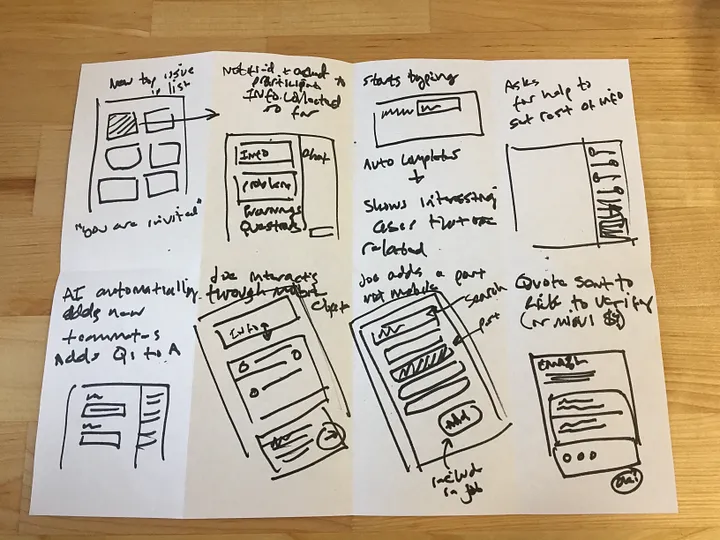 New top issue
in list
"You are invited"
Notified + added to
participant
Info collected
so far
Info
Problem
Warnings
Questions
Chat
Starts typing
Auto completes
Shows interesting
cases that are
related
Asks
for help to
get rest of info
AI automatically
adds new
Adds Q1 to A
Joe interacts
through mobile
Chat
Info
Joe adds a part
via mobile
search
part
Add
include
in job
Quote sent to
to verify
EMAIL